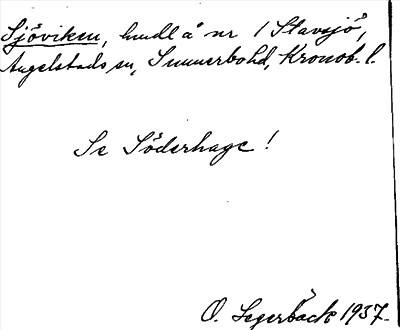 Sjöviken, hmdl å nr 1 Stavsjö,
Angelstads sn, Sunnerbo hd, Kronob. l.
Se Söderhage!
O. Segerbäck 1937.